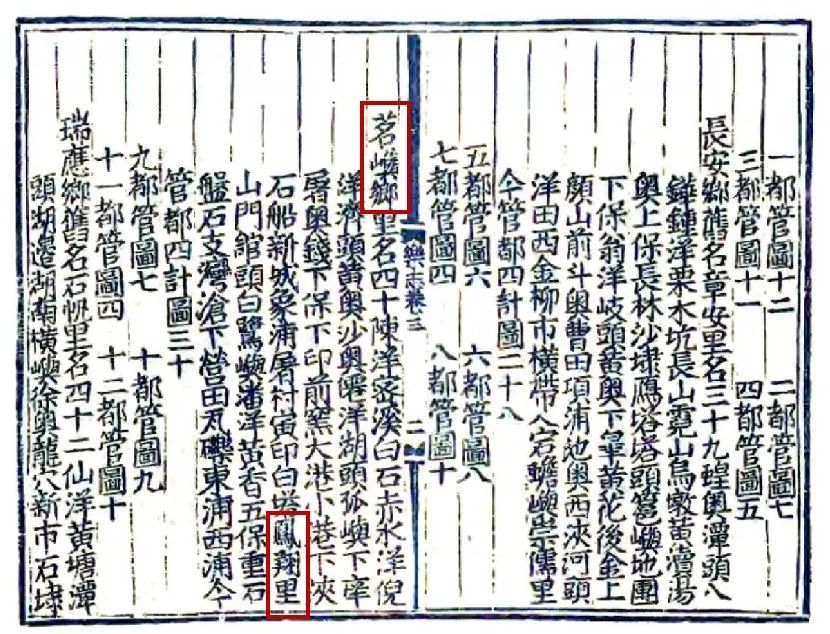 一都管圖十二 二都管圖七
三都管圖十一 四都管圖五
長安鄉舊名章安里名三十九蝗奥潭頭八
鍾洋栗木坑長山霓山烏墩黃瀆湯
奥上保長林沙埭鴈塔塔頭嶼地團
下保翁洋岐頭黃奥下黃後金上
頗山前斗奥曹田項浦地奥西浹河頭
洋田西金柳市橫帶八宕蟾嶼崇儒里
今管都四計圖二十八
五都管圖六 六都管圖八
七都管圖四 八都管圖十
樂志卷三 二
茗嶼鄉里名四十陳洋密溪白石赤水洋倪
洋濟頭黃奥沙奥洋湖頭孤嶼下牽
屠奥錢下保下印前窑大港小港下浹
石船新城象浦屠村寅印白塔鳳翔里
山門館頭白鷺嶼潘洋黃香五保重石
盤石支灣滄下營田瓦礫東浦西浦今
管都四計圖三十
九都管圖七 十都管圖九
十一都管圖四 十二都管圖十
瑞應鄉舊名石里名四十二仙洋黃塘潭
頭湖邊湖橫嶼徐奥龍八新市石埭